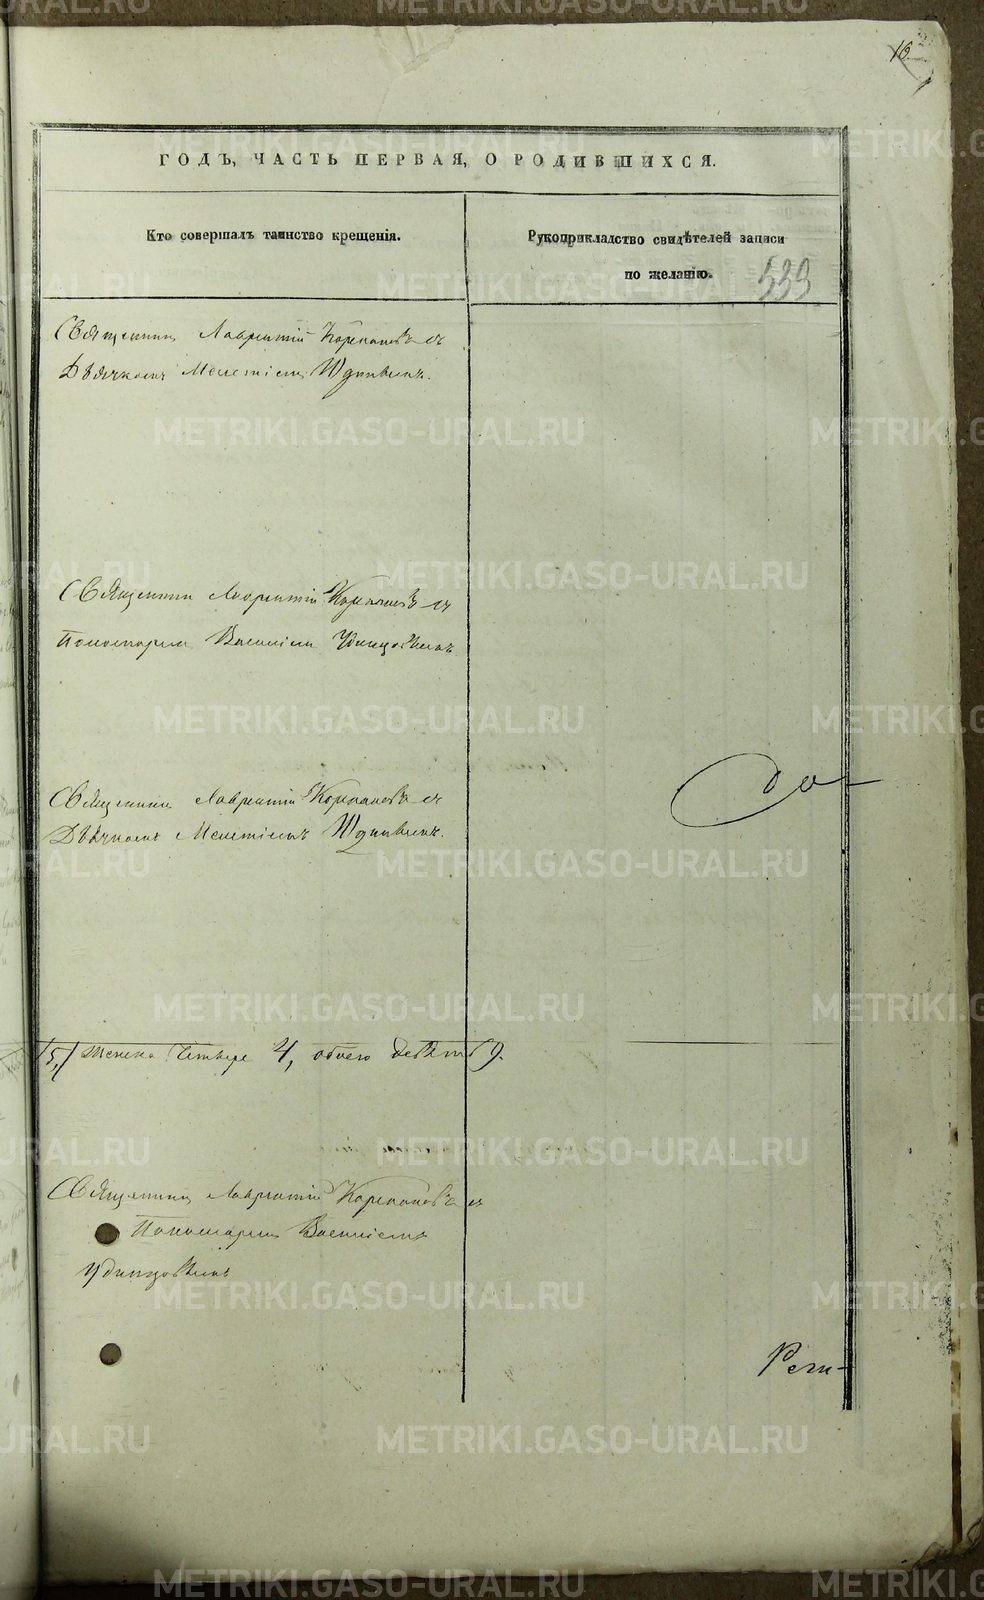 10
ГОДЪ, ЧАСТЬ ПЕРВАЯ, О РОДИВШИХСЯ.
Кто совершалъ таинство крещенія.
Рукоприкладство свидѣтелей записи
по желанію.
533
Священникъ Лаврентій Корепановъ съ
Дьячкомъ Мелетіемъ
Священникъ Лаврентій Корепановъ съ
Пономаремъ Василіемъ Удинцовымъ
Священникъ Лаврентій Корепановъ съ
Дьячкомъ Мелетіемъ
5, женска четыре 4, обоего девять 9.
Священникъ Лаврентій Корепановъ съ
Пономаремъ Василіемъ
Удинцовымъ
METRIKI.GASO-URAL.RU